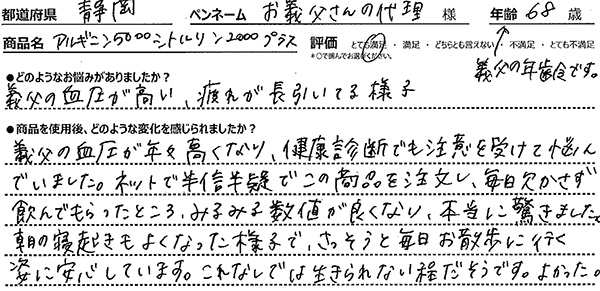 都道府県 静岡 ペンネーム お義父さんの代理 様 年齢 68 歳
商品名 アルギニン5000シトルリン2000プラス 評価 とても満足・満足・どちらとも言えない・不満足・とても不満足
*○で囲んでお選びください。
義父の年齢です。
●どのようなお悩みがありましたか?
義父の血圧が高い、疲れが長引いてる様子
●商品を使用後、どのような変化を感じられましたか?
義父の血圧が年々高くなり、健康診断でも注意を受けて悩ん
でいました。ネットで半信半疑でこの商品を注文し、毎日欠かさず
飲んでもらったところ、みるみる数値が良くなり、本当に驚きました。
朝の寝起きもよくなった様子で、さっそうと毎日お散歩に行く
姿に安心しています。これなしでは生きられない程だそうです。よかった。